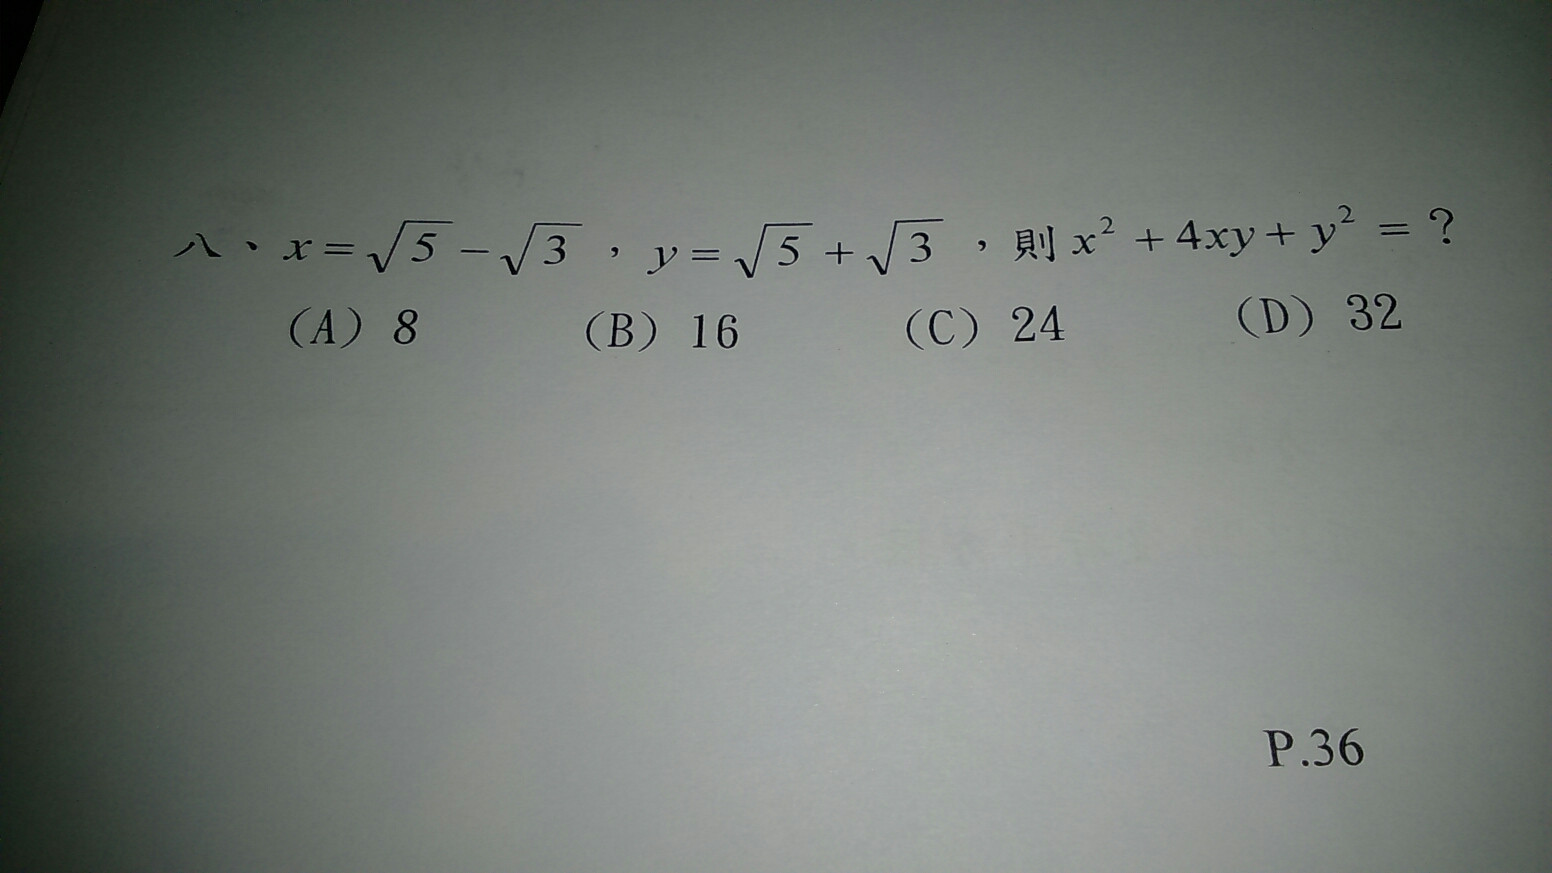 八、x=√5-√3，y=√5+√3，則x²+4xy+y²=？
(A) 8 (B) 16 (C) 24 (D) 32
P.36